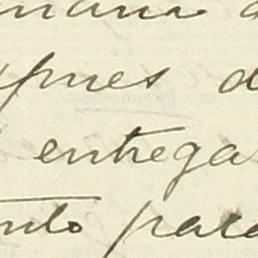 mana
pues d
entrega
nto para